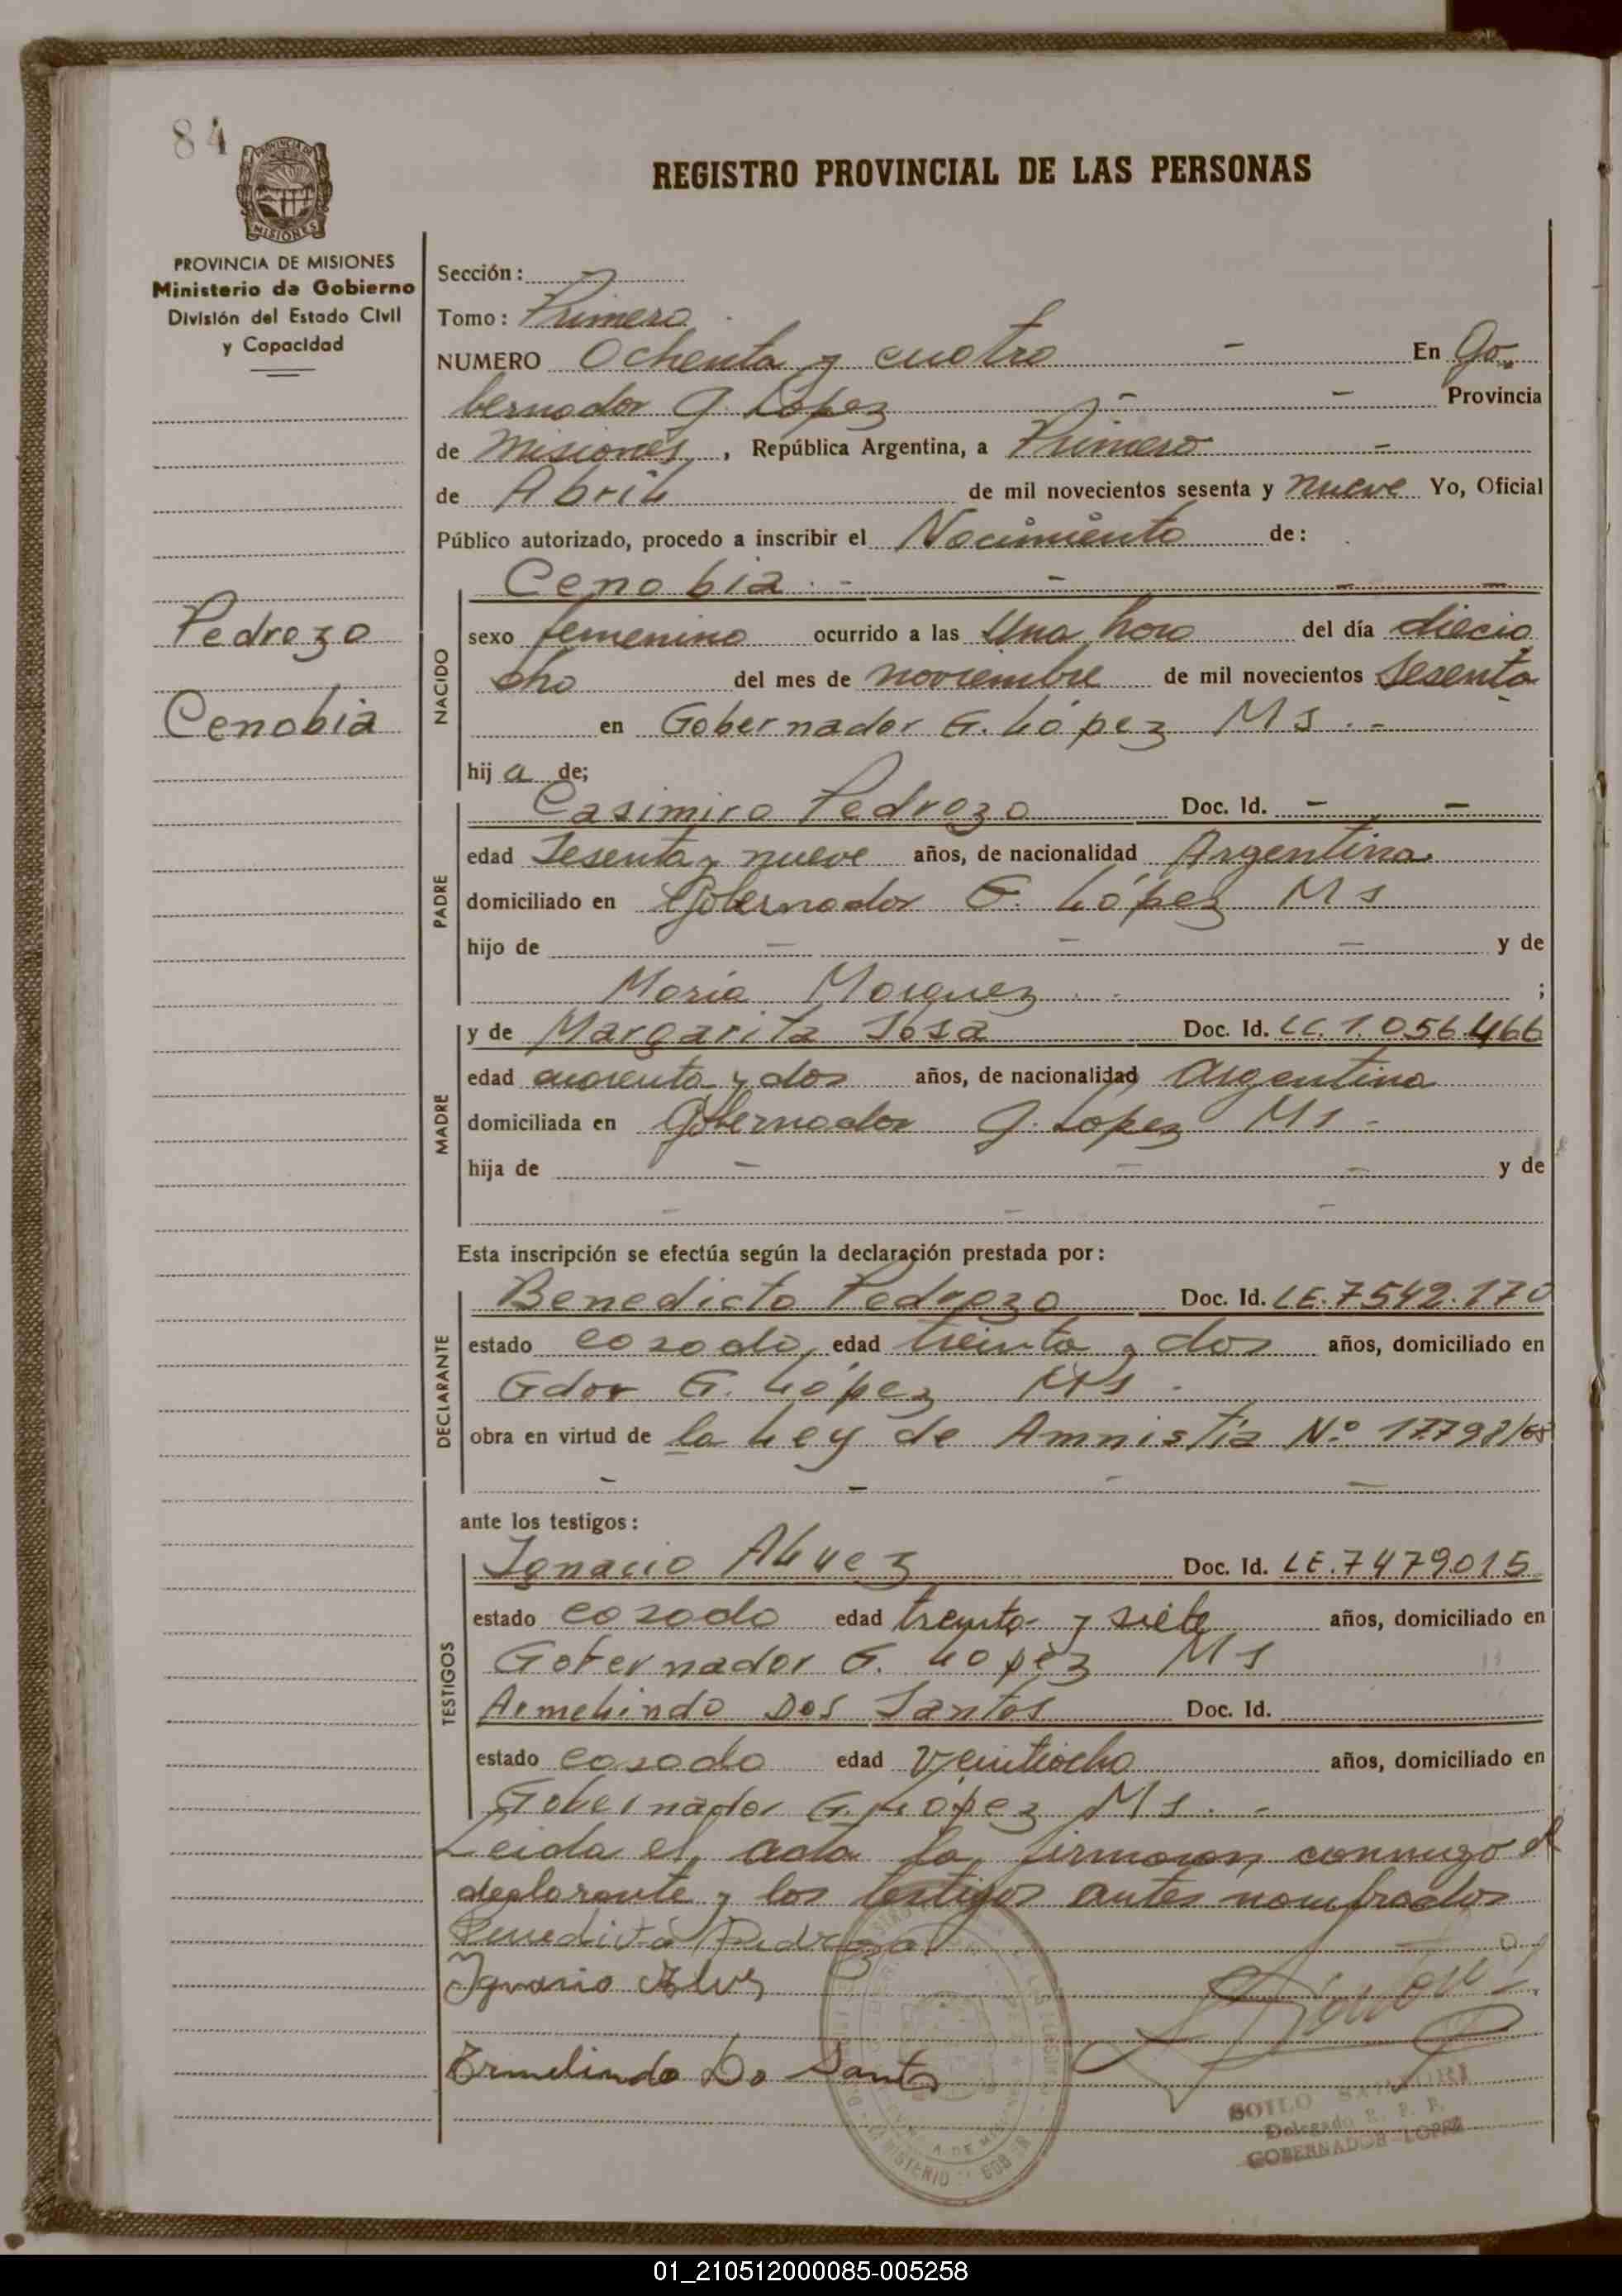 84
PROVINCIA DE MISIONES
REGISTRO PROVINCIAL DE LAS PERSONAS
PROVINCIA DE MISIONES
Ministerio de Gobierno
División del Estado Civil
y Capacidad
Sección:
Tomo: Primero
NUMERO Ochenta y cuatro - En Go
bernador G. López - - Provincia
de Misiones, República Argentina, a Primero -
de Abril de mil novecientos sesenta y nueve Yo, Oficial
Público autorizado, procedo a inscribir el Nacimiento de:
Cenobia - - - -
Pedrozo
Cenobia
NACIDO
sexo femenino ocurrido a las Una hora del día diecio
cho del mes de noviembre de mil novecientos sesenta
en Gobernador G. López Ms. -
hija de;
PADRE
Casimiro Pedrozo Doc. Id. - -
edad Sesenta y nueve años, de nacionalidad Argentina
domiciliado en Gobernador G. López Ms
hijo de - - - y de
María Marquez ;
MADRE
y de Margarita Sosa Doc. Id. LC. 1.056.466
edad cuarenta y dos años, de nacionalidad argentina
domiciliada en Gobernador G. López Ms -
hija de - - - y de
- - -
Esta inscripción se efectúa según la declaración prestada por:
DECLARANTE
Benedicto Pedrozo Doc. Id. LE. 7542.170
estado casado, edad treinta y dos años, domiciliado en
Gdor G. López Ms.
obra en virtud de la Ley de Amnistía Nº 17798/68
- - - -
ante los testigos:
TESTIGOS
Ignacio Alvez Doc. Id. LE. 7479015
estado casado edad treinta y siete años, domiciliado en
Gobernador G. López Ms
Armelindo Dos Santos Doc. Id.
estado casado edad Veintiocho años, domiciliado en
Gobernador G. López Ms. -
Leida el acta la firmaron conmigo el
declarante y los testigos antes nombrados
Benedicto Pedrozo
Ignasio Alves
Ermelindo Do Santo
SOILO SARTORI
Delegado R. P. P.
GOBERNADOR LOPEZ
01_210512000085-005258